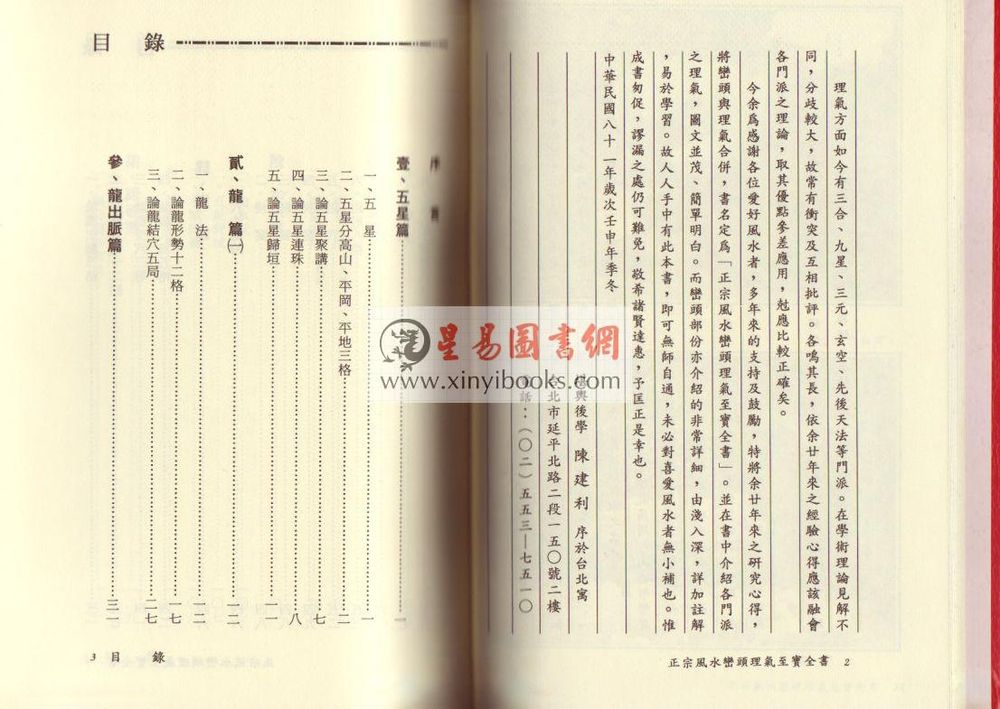 理氣方面如今有三合、九星、三元、玄空、先後天法等門派。在學術理論見解不
同，分歧較大，故常有衝突及互相批評。各鳴其長，依余廿年來之經驗心得應該融會
各門派之理論，取其優點參差應用，尅應比較正確矣。
今余爲感謝各位愛好風水者，多年來的支持及鼓勵，特將余廿年來之硏究心得，
將巒頭與理氣合併，書名定爲「正宗風水巒頭理氣至寶全書」。並在書中介紹各門派
之理氣，圖文並茂、簡單明白。而巒頭部份亦介紹的非常詳細，由淺入深，詳加註解
，易於學習。故人人手中有此本書，即可無師自通，未必對喜愛風水者無小補也。惟
成書匆促，謬漏之處仍可難免，敬希諸賢達惠，予匡正是幸也。
中華民國八十一年歲次壬申年季冬
堪與後學 陳建利 序於台北寓
台北市延平北路二段一五〇號二樓
電話：（〇二）五五三—七五一〇
正宗風水巒頭理氣至寶全書 2
目錄
序言
壹、五星篇……一
一、五星……一
二、五星分高山、平岡、平地三格……二
三、論五星聚講……七
四、論五星連珠……八
五、論五星歸垣……一一
貳、龍篇㈠……一二
一、龍法……一二
二、論龍形勢十二格……一七
三、論龍結穴五局……二七
參、龍出脈篇……三一
3 目錄
星易圖書網
www.xinyibooks.com